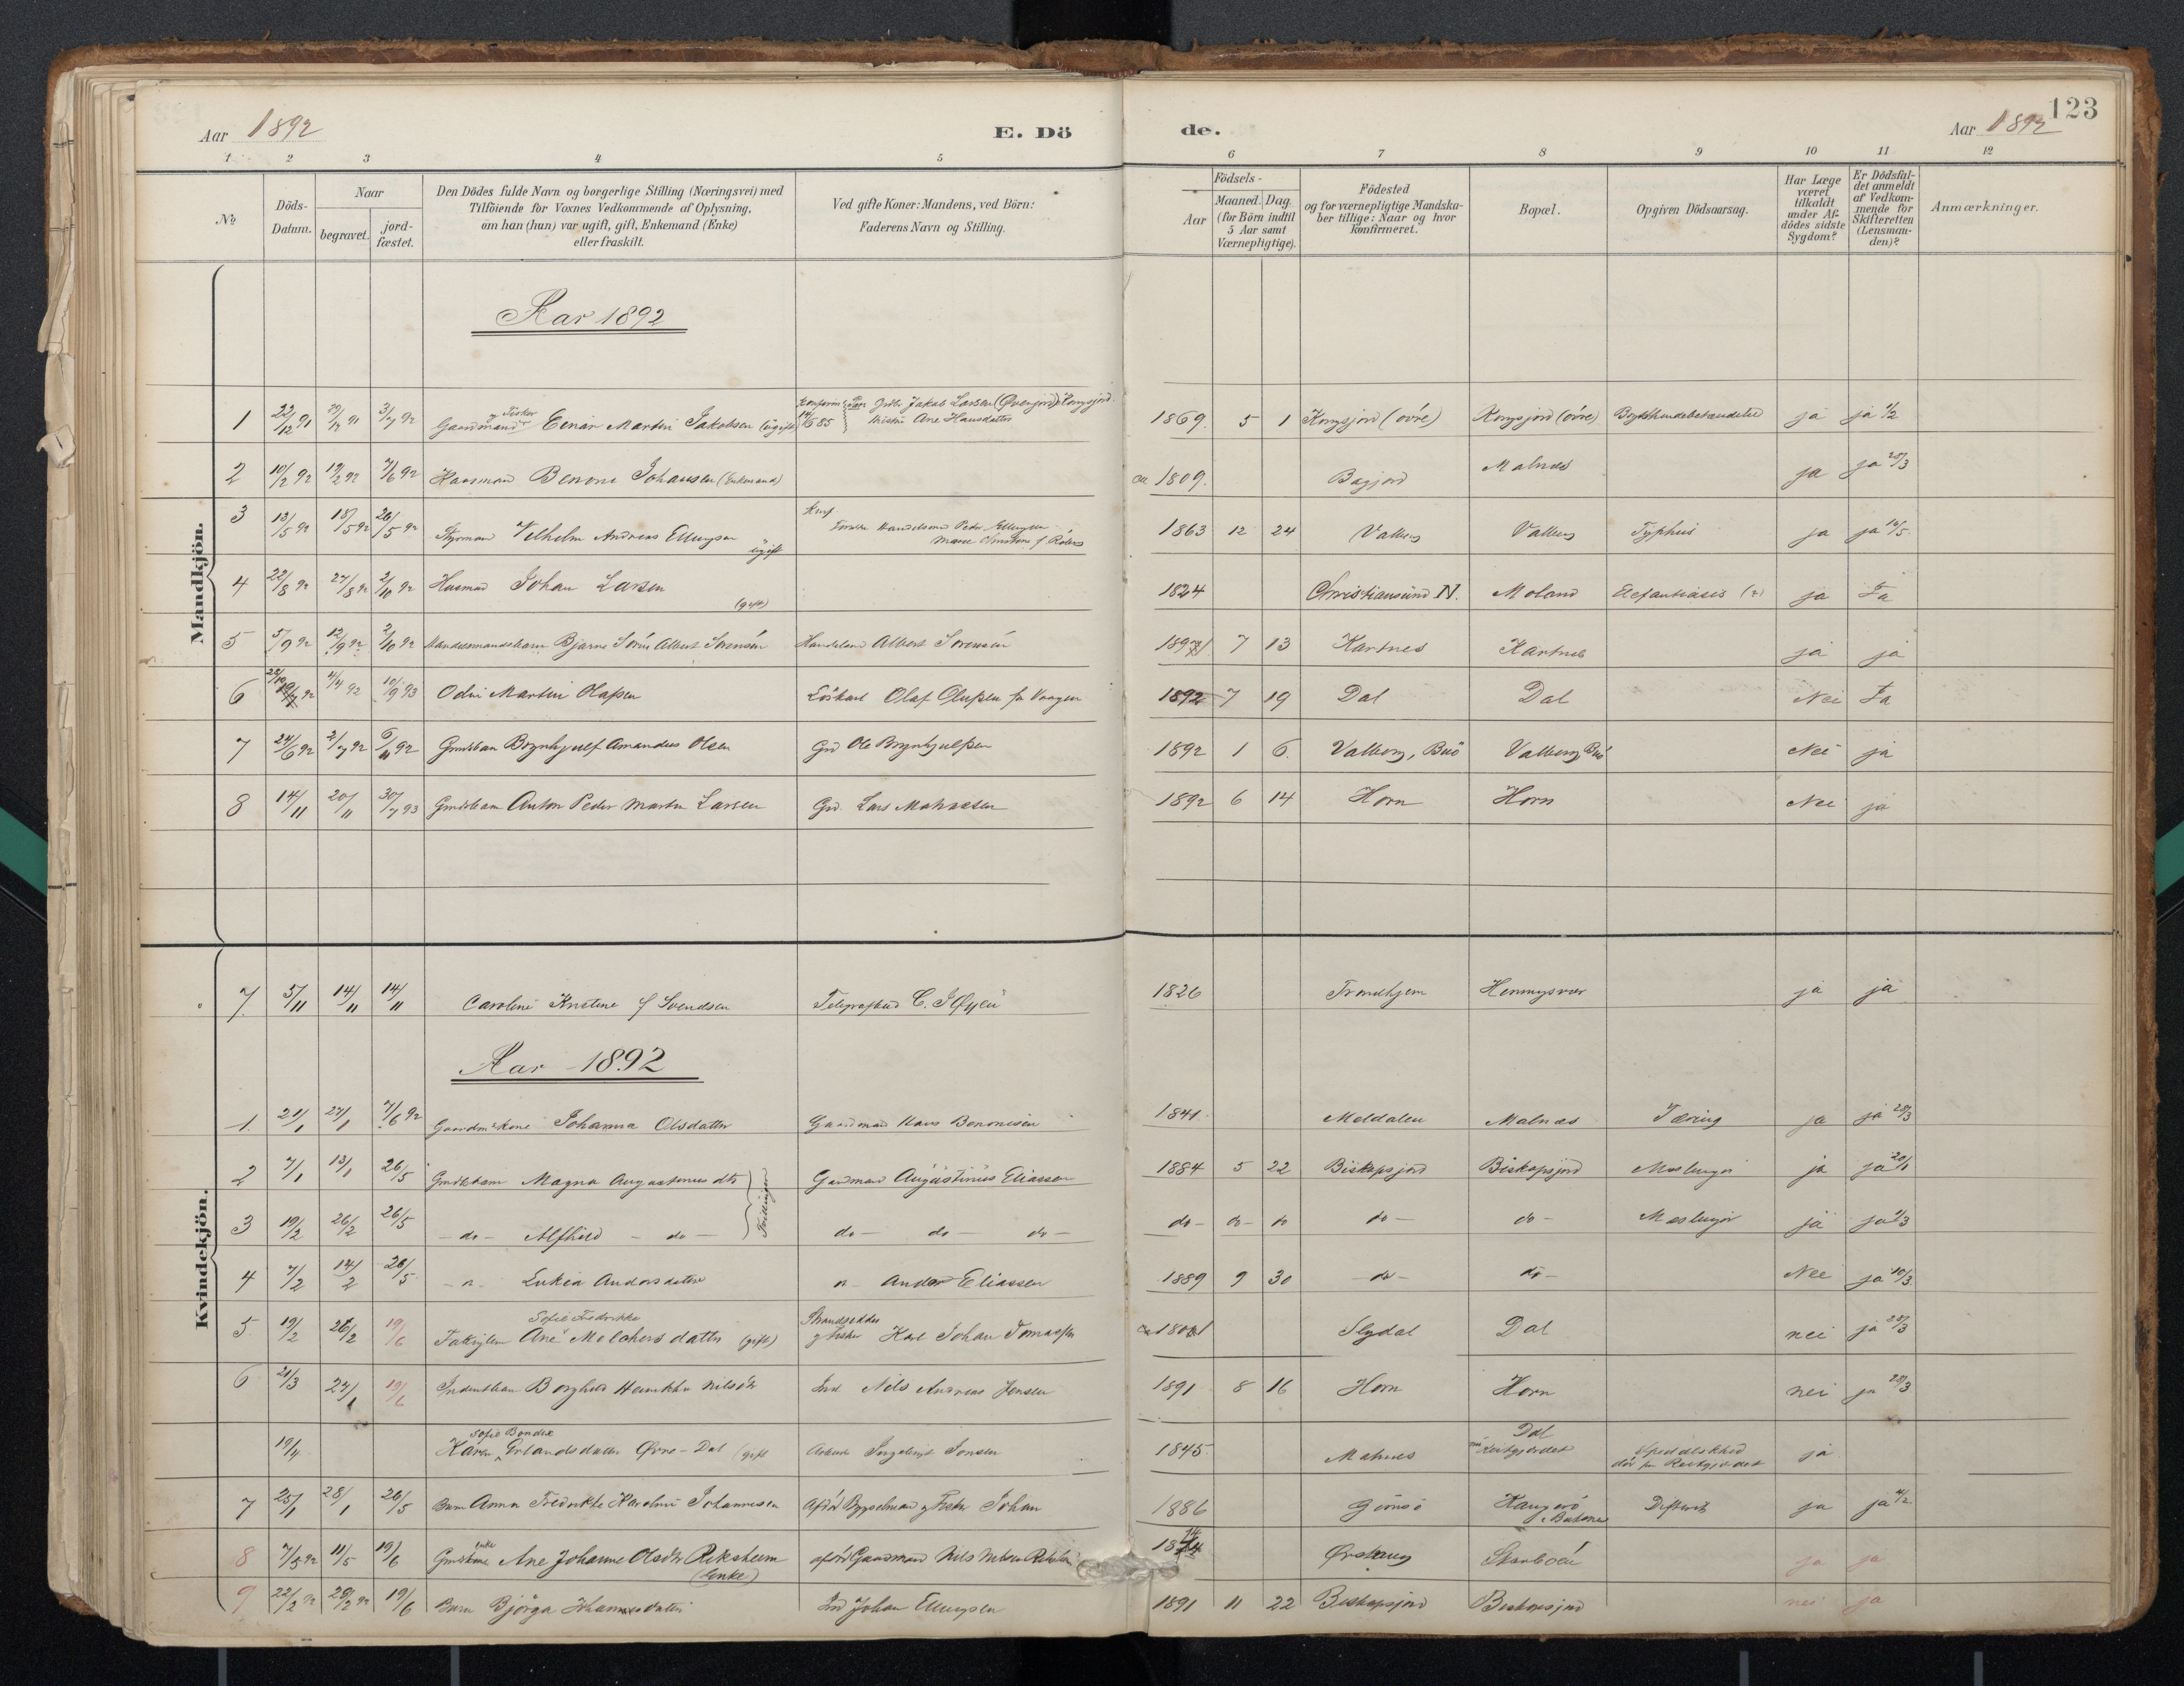 123
Aar 1892 E. Dö
de. Aar 1892
1 2 3 4 5 6 7 8 9 10 11 12
No
Döds-
Datum.
Naar
begravet.
jord-
fæstet.
Den Dödes fulde Navn og borgerlige Stilling (Næringsvei) med
Tilföiende for Voxnes Vedkommende af Oplysning,
om han (hun) var ugift, gift, Enkemand (Enke)
eller fraskilt.
Ved gifte Koner: Mandens, ved Börn:
Faderens Navn og Stilling.
Födsels-
Aar
Maaned. Dag.
(for Börn indtil
5 Aar samt
Værnepligtige).
Födested
og for værnepligtige Mandska-
ber tillige: Naar og hvor
konfirmeret.
Bopæl.
Opgiven Dödsaarsag.
Har Læge
været
tilkaldt
under Af-
dödes sidste
Sygdom?
Er Dödsfal-
det anmeldt
af Vedkom-
mende for
Skifteretten
(Lensman-
den)?
Anmærkninger.
Mandkjön.
Aar 1892
1 22/12 91 3/7 92 Gaardmand og Fisker Einar Martin Jakobsen (ugift) 14/6 85 Jakob Larsen Ane Hansdatter 1869 5 1 (övre) (övre) ja ja 1/2
2 10/2 92 19/2 92 7/6 92 Benoni Johansen (Enkemand) ca 1809. Bagjord Malnes ja ja 28/3
3 13/5 92 18/5 92 26/5 92 Styrmand Velhelm Andreas Ellingsen ugift 1863 12 24 Valberg Valberg Typhus ja ja 16/5
4 22/8 92 27/8 92 2/10 92 Husmand Johan Larsen (gift) 1824 Christiansund N. Moland Elefantiasis (?) ja Ja
5 5/9 92 12/9 92 2/10 92 Handelsmandsbarn Bjarne Sörin Albert Sörensen Handelsmd Albert Sörensen 1891 7 13 Kartnes Kartnes ja ja
6 4/4 92 10/9 93 Odin Martin Olafsen Löskarl Olaf Olufsen fra Vaagen 1892 7 19 Dal Dal Nei Ja
7 24/6 92 2/7 92 6/11 92 Grmdsbarn Brynhjulf Amandus Olsen Grd Ole Brynhjulfsen 1892 1 6 Valberg, Buö Valberg, Buö Nei ja
8 14/11 20/11 30/7 93 Grmdsbarn Anton Peder Martin Larsen Grd. Lars Mathisesen 1892 6 14 Horn Horn Nei ja
Kvindekjön.
7 5/11 14/11 14/11 Caroline Kristine f Svendsen C. J. 1826 Trondhjem Henningsvær ja ja
Aar 1892
1. 21/1 27/1 7/6 92 Gaardmskone Johanna Olsdatter Gaardmand Hans Benonisen 1841. Meldalen Malnes Tæring ja ja 28/3
2 7/1 13/1 26/5 Grmdsbarn Magna Augustinusdtr Gaardmand Augustinus Eliassen 1884 5 22 Biskopsjord Biskopsjord Meslinger ja ja 20/1
Tvillinger
3 19/2 26/2 26/5 - do - Alfhild - do - do - do - do - do - do - do do - do - Meslinger ja ja 1/3
4 7/2 14/2 26/5 - " - Lukia Andersdatter " - Ander Eliassen 1889 9 30 - do - do - Nei ja 10/3
5 19/2 26/2 19/6 Ane Sofie Fredrikke Melchersdatter (gift) Strandsidder og Fisker Karl Johan Tomassen Slydal Dal nei ja 28/3
6 21/3 27/1 19/6 Inderstbarn Borghild Henrikke Nilsdtr Ind. Nils Andreas Jensen 1891 8 16 Horn Horn nei ja 28/3
19/4 Karen Sofie Bendix Erlandsdatter Övre-Dal (gift Ingebrigt Jonsen 1845 Malnes Dal Reitgjerdet Spedalskhed död paa Reitgjerdet ja
7 25/1 28/1 26/5 Barn Anna Fredrikke Karoline Johannesen Afdöd Bygselmand og Fisker Johan 1886 Gimsö Difterit ja ja 4/2
8 7/5 92 11/5 19/6 enke Ane Johanne Olsdtr Reksheim (Enke) afdöd Gaardmand Nils Nilsen 1814 Örskaug ja ja
9 22/2 92 29/2 92 19/6 Barn Björga Johannesdatter Ind Johan Ellingsen 1891 11 22 Biskopsjord Biskopsjord nei ja